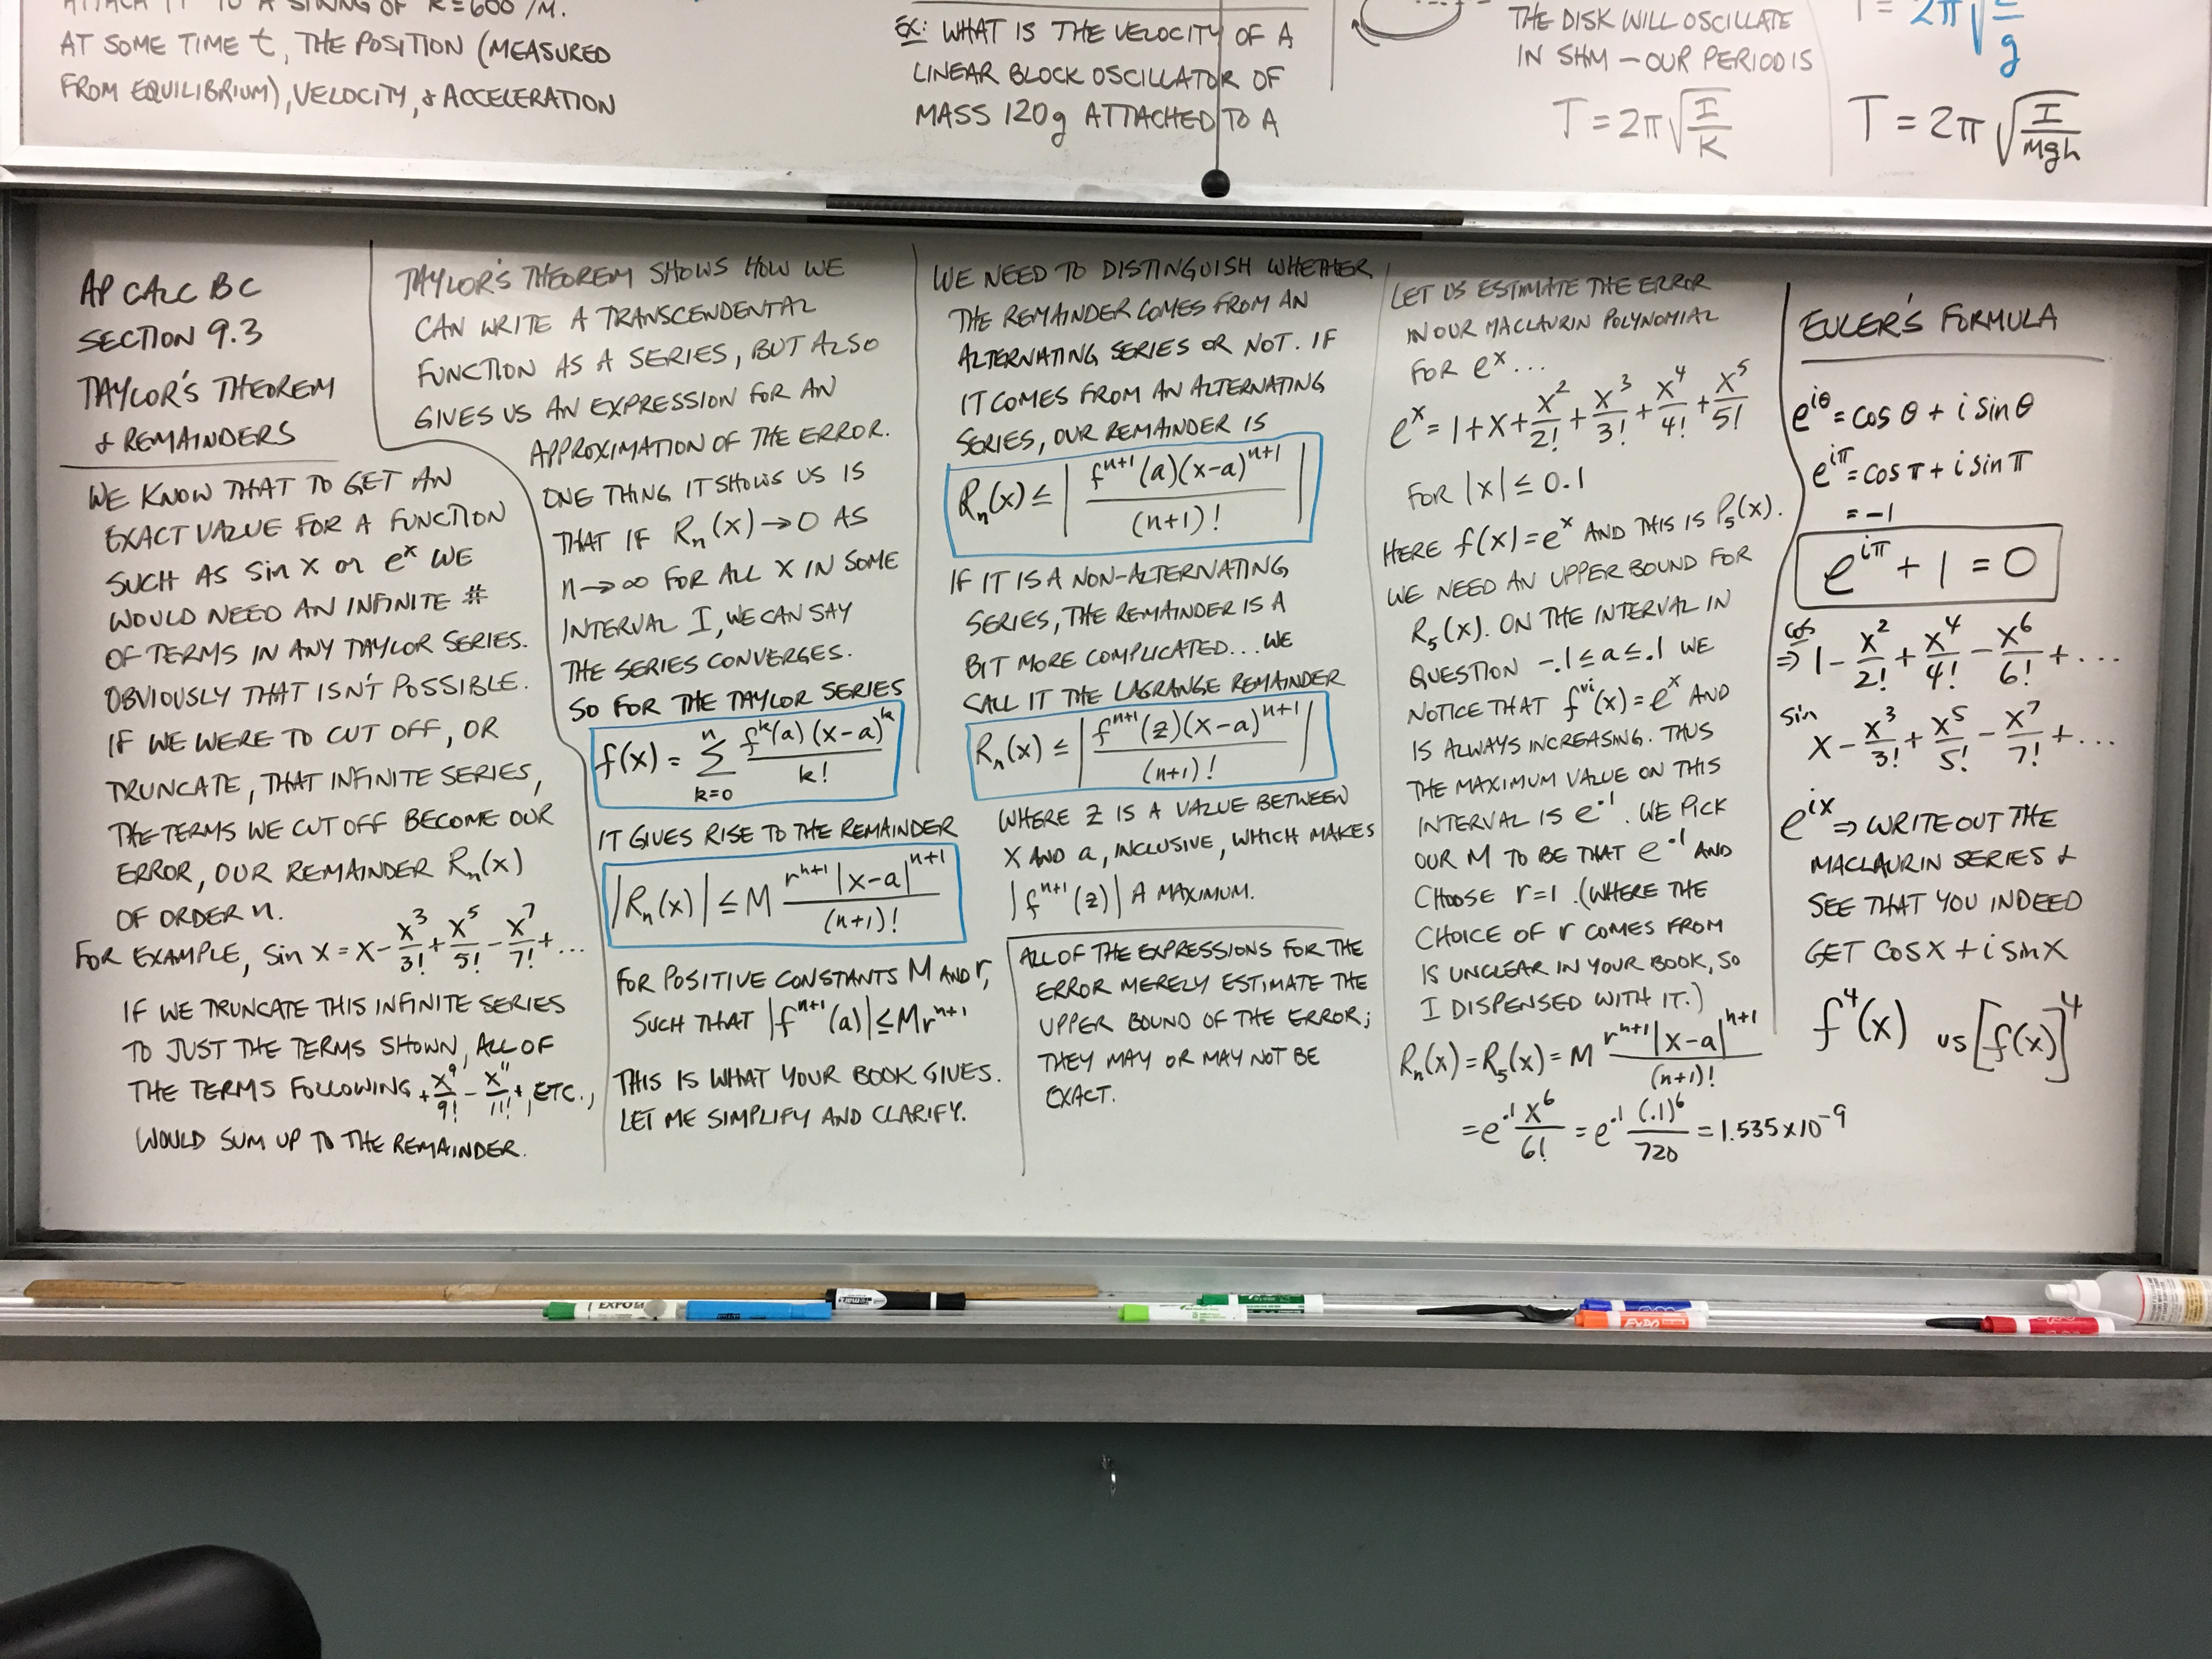 ATTACH IT TO A STRING OF K=600 /M.
AT SOME TIME t, THE POSITION (MEASURED
FROM EQUILIBRIUM), VELOCITY, & ACCELERATION
EX: WHAT IS THE VELOCITY OF A
LINEAR BLOCK OSCILLATOR OF
MASS 120g ATTACHED TO A
THE DISK WILL OSCILLATE
IN SHM – OUR PERIOD IS
T = 2π√(I/K)
T = 2π√(L/g)
T = 2π√(I/Mgh)
AP CALC BC
SECTION 9.3
TAYLOR'S THEOREM
& REMAINDERS
WE KNOW THAT TO GET AN
EXACT VALUE FOR A FUNCTION
SUCH AS sin x or e^x WE
WOULD NEED AN INFINITE #
OF TERMS IN ANY TAYLOR SERIES.
OBVIOUSLY THAT ISN'T POSSIBLE.
IF WE WERE TO CUT OFF, OR
TRUNCATE, THAT INFINITE SERIES,
THE TERMS WE CUT OFF BECOME OUR
ERROR, OUR REMAINDER Rn(x)
OF ORDER n.
FOR EXAMPLE, sin x = x - x^3/3! + x^5/5! - x^7/7! + ...
IF WE TRUNCATE THIS INFINITE SERIES
TO JUST THE TERMS SHOWN, ALL OF
THE TERMS FOLLOWING, + x^9/9! - x^11/11! +, ETC.,
WOULD SUM UP TO THE REMAINDER.
TAYLOR'S THEOREM SHOWS HOW WE
CAN WRITE A TRANSCENDENTAL
FUNCTION AS A SERIES, BUT ALSO
GIVES US AN EXPRESSION FOR AN
APPROXIMATION OF THE ERROR.
ONE THING IT SHOWS US IS
THAT IF Rn(x) → 0 AS
n → ∞ FOR ALL X IN SOME
INTERVAL I, WE CAN SAY
THE SERIES CONVERGES.
SO FOR THE TAYLOR SERIES
f(x) = Σ_{k=0}^{n} f^k(a) (x-a)^k / k!
IT GIVES RISE TO THE REMAINDER
|Rn(x)| ≤ M r^{n+1} |x-a|^{n+1} / (n+1)!
FOR POSITIVE CONSTANTS M AND r,
SUCH THAT |f^{n+1}(a)| ≤ Mr^{n+1}
THIS IS WHAT YOUR BOOK GIVES.
LET ME SIMPLIFY AND CLARIFY.
WE NEED TO DISTINGUISH WHETHER
THE REMAINDER COMES FROM AN
ALTERNATING SERIES OR NOT. IF
IT COMES FROM AN ALTERNATING
SERIES, OUR REMAINDER IS
Rn(x) ≤ | f^{n+1}(a)(x-a)^{n+1} / (n+1)! |
IF IT IS A NON-ALTERNATING
SERIES, THE REMAINDER IS A
BIT MORE COMPLICATED... WE
CALL IT THE LAGRANGE REMAINDER
Rn(x) ≤ | f^{n+1}(z)(x-a)^{n+1} / (n+1)! |
WHERE Z IS A VALUE BETWEEN
X AND a, INCLUSIVE, WHICH MAKES
|f^{n+1}(z)| A MAXIMUM.
ALL OF THE EXPRESSIONS FOR THE
ERROR MERELY ESTIMATE THE
UPPER BOUND OF THE ERROR;
THEY MAY OR MAY NOT BE
EXACT.
LET US ESTIMATE THE ERROR
IN OUR MACLAURIN POLYNOMIAL
FOR e^x...
e^x = 1 + x + x^2/2! + x^3/3! + x^4/4! + x^5/5!
FOR |x| ≤ 0.1
HERE f(x) = e^x AND THIS IS P5(x).
WE NEED AN UPPER BOUND FOR
R5(x). ON THE INTERVAL IN
QUESTION -.1 ≤ a ≤ .1 WE
NOTICE THAT f^vi(x) = e^x AND
IS ALWAYS INCREASING. THUS
THE MAXIMUM VALUE ON THIS
INTERVAL IS e^.1. WE PICK
OUR M TO BE THAT e^.1 AND
CHOOSE r=1. (WHERE THE
CHOICE OF r COMES FROM
IS UNCLEAR IN YOUR BOOK, SO
I DISPENSED WITH IT.)
Rn(x) = R5(x) = M r^{n+1} |x-a|^{n+1} / (n+1)!
= e^.1 x^6/6! = e^.1 (.1)^6/720 = 1.535x10^-9
EULER'S FORMULA
e^{iθ} = cos θ + i sin θ
e^{iπ} = cos π + i sin π
= -1
e^{iπ} + 1 = 0
cos
⇒ 1 - x^2/2! + x^4/4! - x^6/6! + ...
sin
x - x^3/3! + x^5/5! - x^7/7! + ...
e^{ix} ⇒ WRITE OUT THE
MACLAURIN SERIES &
SEE THAT YOU INDEED
GET cos x + i sin x
f^4(x) vs [f(x)]^4
EXPO
EXPO